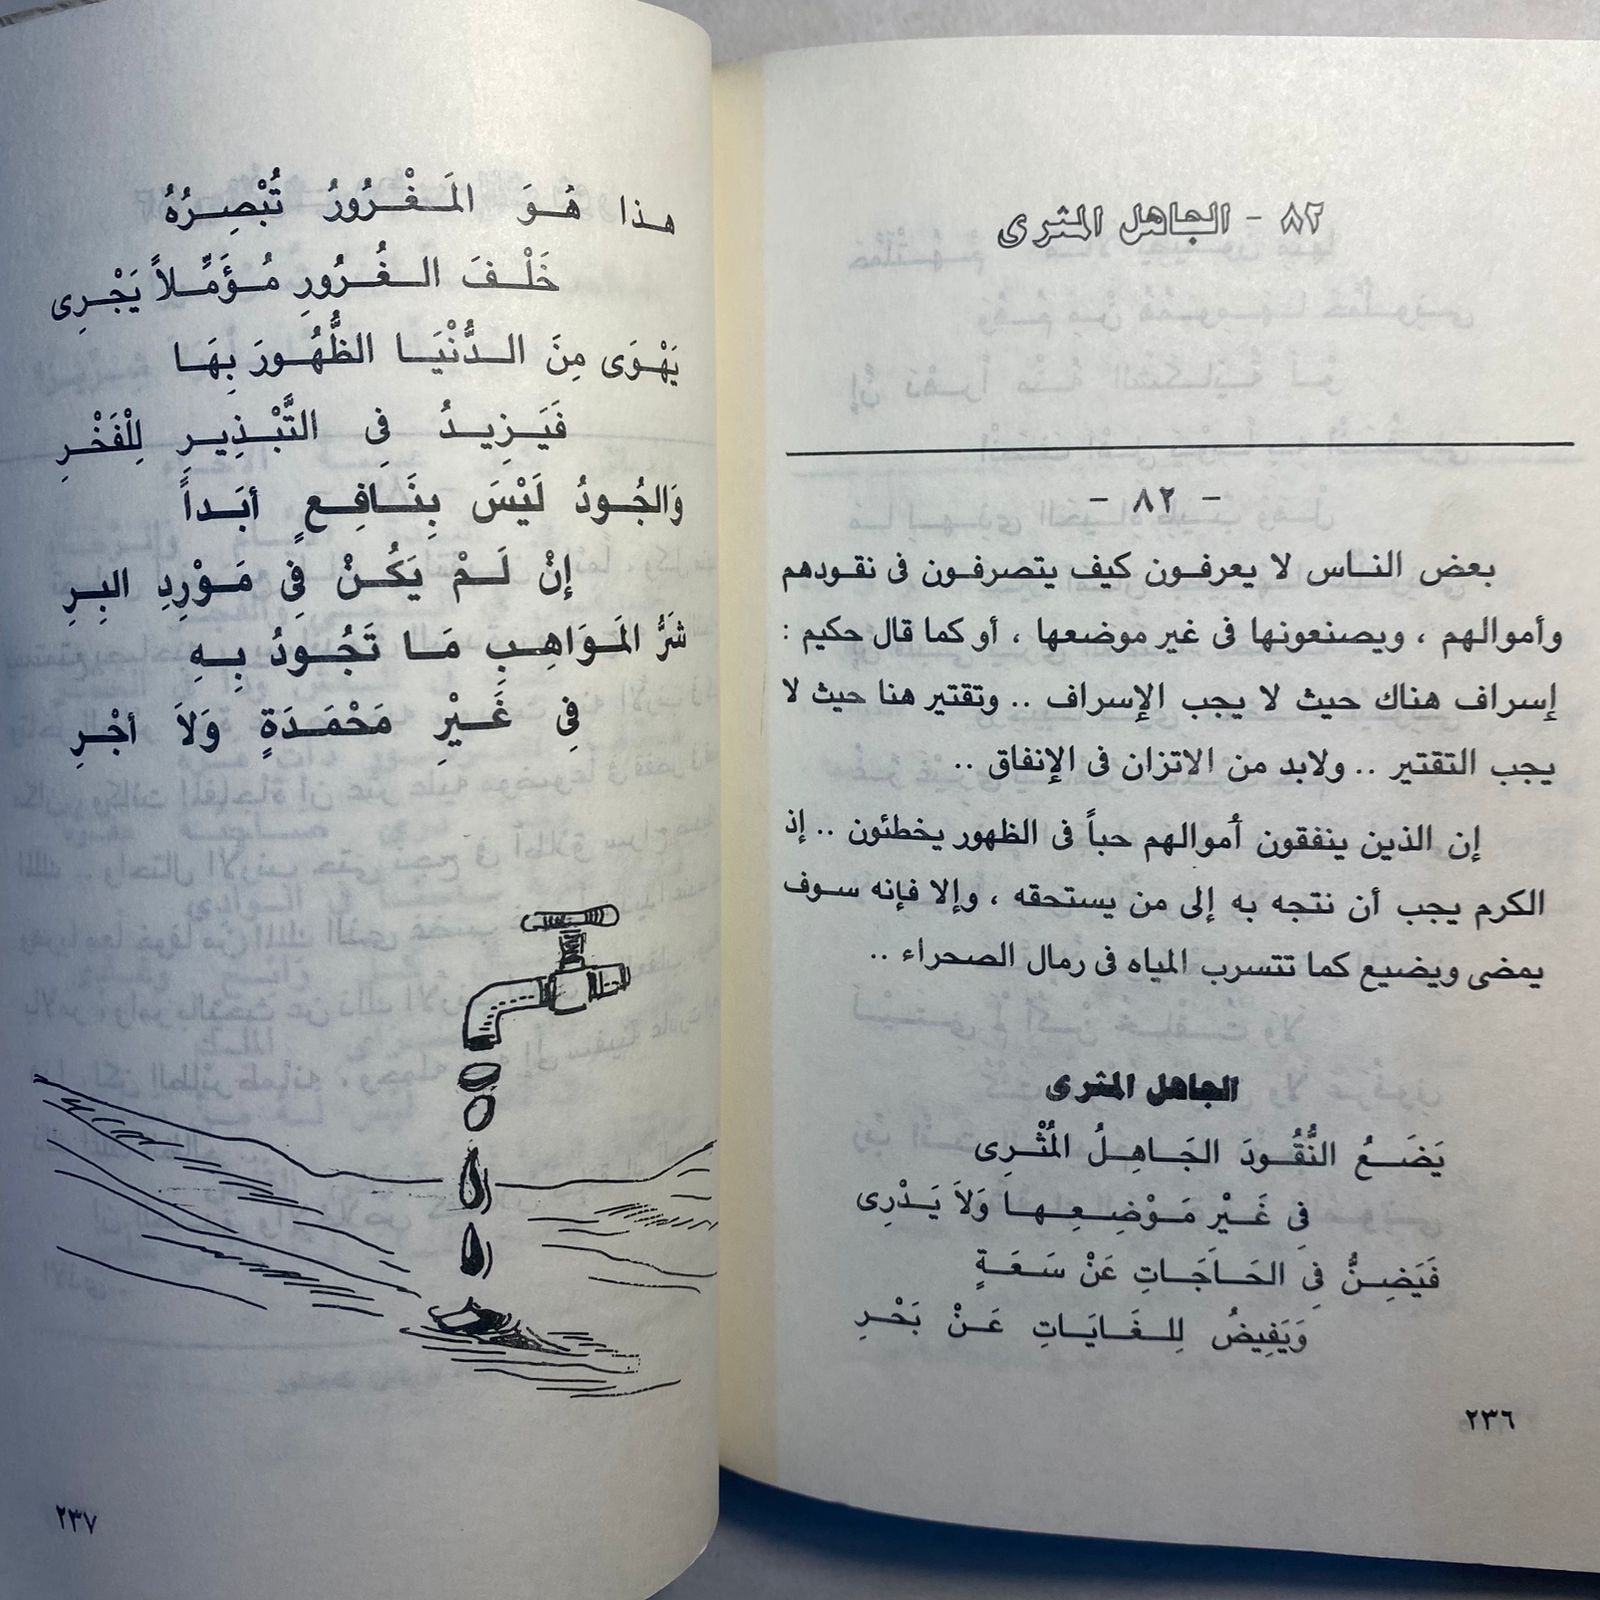 ٨٢ - الجاهل المثرى
- ٨٢ -
بعض الناس لا يعرفون كيف يتصرفون فى نقودهم
وأموالهم ، ويصنعونها فى غير موضعها ، أو كما قال حكيم :
إسراف هناك حيث لا يجب الإسراف .. وتقتير هنا حيث لا
يجب التقتير .. ولابد من الاتزان فى الإنفاق ..
إن الذين ينفقون أموالهم حباً فى الظهور يخطئون .. إذ
الكرم يجب أن نتجه به إلى من يستحقه ، وإلا فإنه سوف
يمضى ويضيع كما تتسرب المياه فى رمال الصحراء ..
الجاهل المثرى
يَضَعُ النُّقُودَ الجَاهِلُ المُثْرِى
فِى غَيْرِ مَوْضِعِها وَلاَ يَدْرِى
فَيَضِنُّ فِى الحَاجَاتِ عَنْ سَعَةٍ
وَيَفِيضُ لِلغَايَاتِ عَنْ بَحْرِ
٢٣٦
هذا هُوَ المَغْرُورُ تُبْصِرُهُ
خَلْفَ الغُرُورِ مُؤَمِّلاً يَجْرِى
يَهْوَى مِنَ الدُّنْيَا الظُّهُورَ بِهَا
فَيَزِيدُ فِى التَّبْذِيرِ لِلْفَخْرِ
وَالجُودُ لَيْسَ بِنَافِعٍ أبَداً
إنْ لَمْ يَكُنْ فِى مَوْرِدِ البِرِ
شَرُّ المَوَاهِبِ مَا تَجُودُ بِهِ
فِى غَيْرِ مَحْمَدَةٍ وَلاَ أجْرِ
٢٣٧